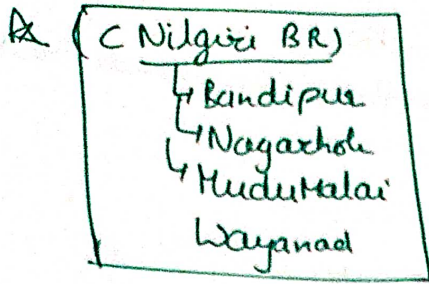 (C Nilgiri BR)
↳ Bandipur
↳ Nagarhole
↳ MuduMalai
Wayanad